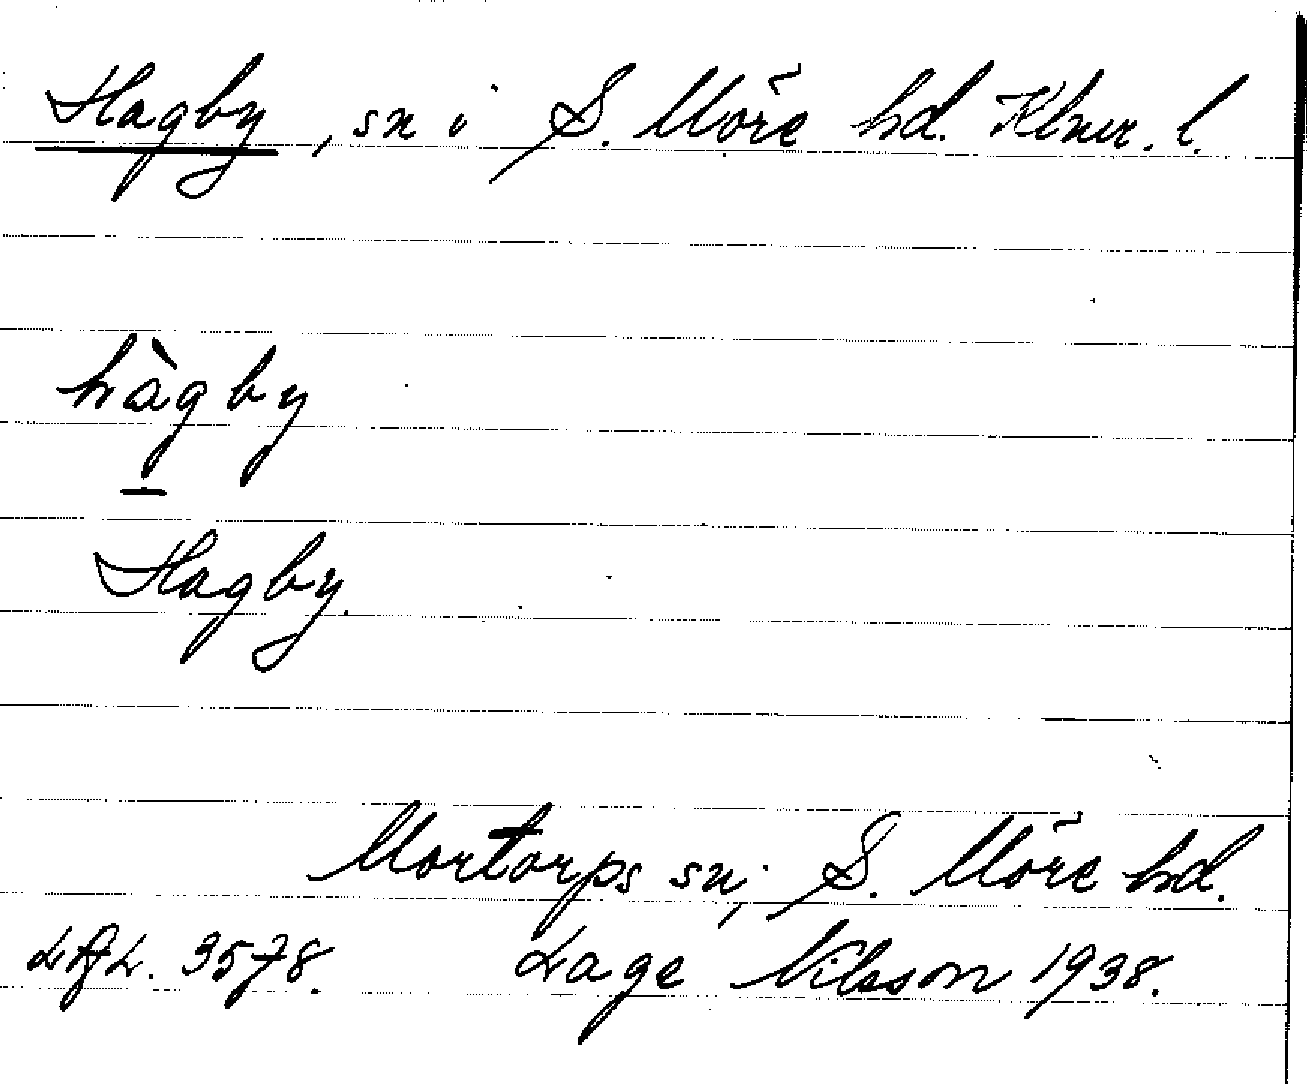 Hagby, sn i S. Möre hd. Klmr. l.
hàgby
Hagby
Mortorps sn; S. Möre hd.
LAL. 3578. Lage Nilsson 1938.